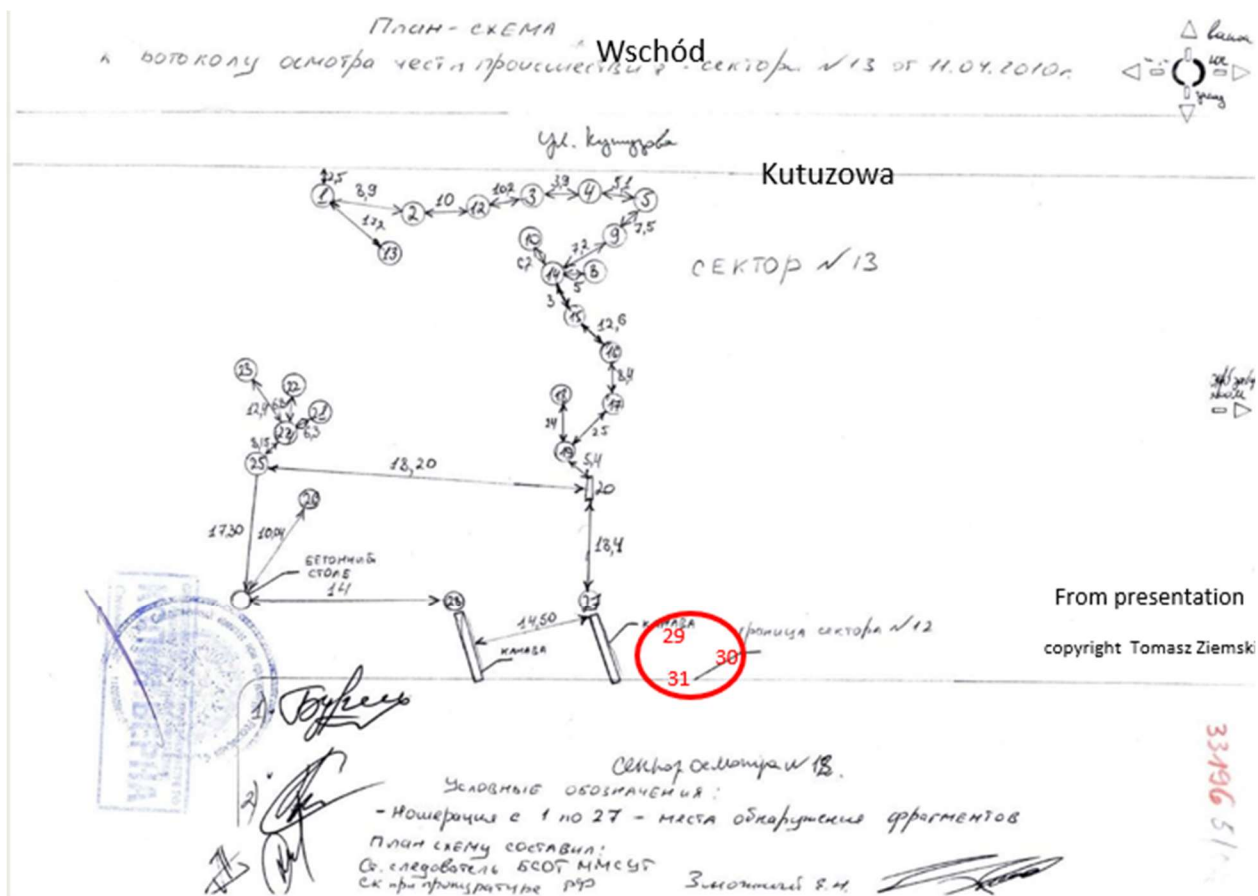 План-схема
Wschód
к протоколу осмотра места происшествия - сектора №13 от 11.04.2010г.
ул. Кутузова
Kutuzowa
СЕКТОР №13
12,5
1
8,9
2
10
12
10,2
3
3,9
4
5,1
5
17,2
13
9
7,5
10
7,2
14
8
5
3
15
12,6
16
8,4
17
18
24
25
19
5,4
20
23
22
12,4
21
6,3
25
18,20
17,30
10,04
БЕТОННЫЙ
СТОЛБ
14
18,4
28
27
14,50
КАНАВА
КАНАВА
29
30
31
граница сектора №12
From presentation
copyright Tomasz Ziemski
1)
2)
Сектор осмотра №
Условные обозначения:
- Нумерация с 1 по 27 - места обнаружения фрагментов
План схему составил:
Ст. следователь
СК при прокуратуре РФ